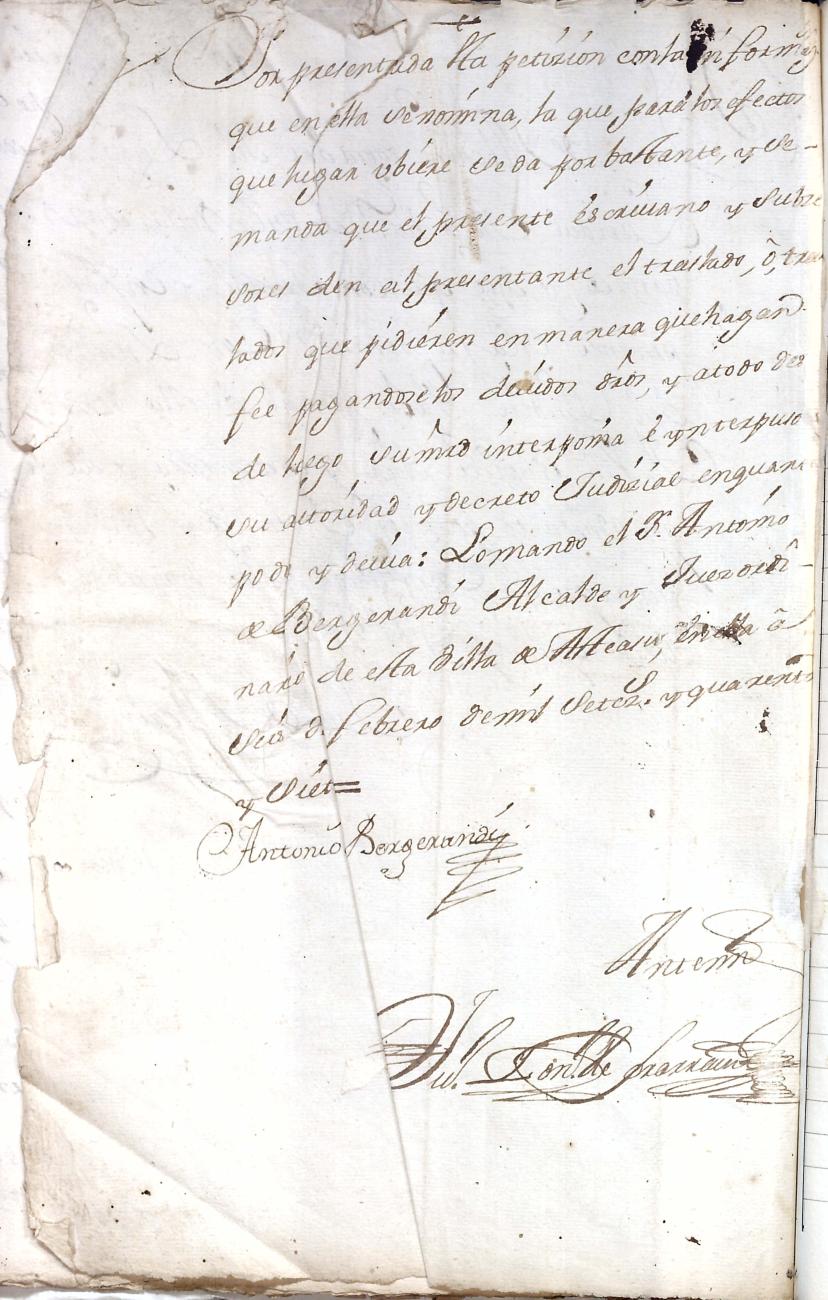 Por presentada esta petizión con la informaz
que en ella se nomina, la que para los efectos
que lugar ubiere se da por bastante, y se
manda que el presente escriuano y Subze
sores den al presentante el traslado, ô, tras
lados que pidiéren en manera que hagan
fee pagandose los deuidos drôs, y a todo des
de luego su mrd interponia é ynterpuso
su autoridad y decreto Judizial en quanto
podi y deuia: Lo mando el Sr. Antonio
de Bergerandi Alcalde y Juez ordi
nario de esta Villa de Atteasu, en ella â
seis d. febrero de mil setezs. y quarenta
y siete=
Antonio Bergerandi
Antemi